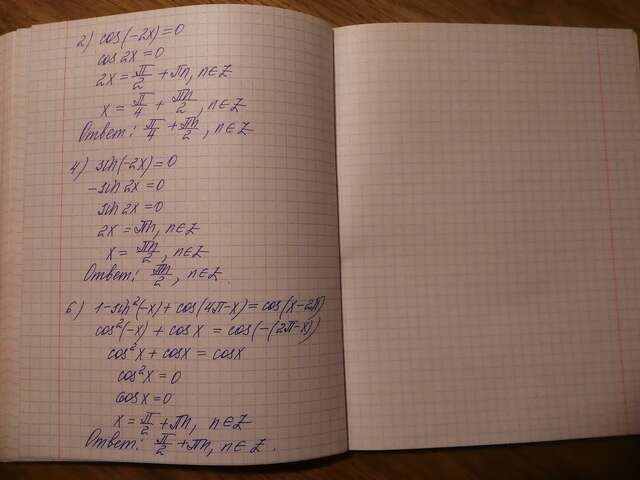 2) cos(-2x)=0
cos 2x=0
2x = π/2 + πn, n∈Z
x = π/4 + πn/2, n∈Z
Ответ: π/4 + πn/2, n∈Z
4) sin(-2x)=0
-sin 2x=0
sin 2x=0
2x = πn, n∈Z
x = πn/2, n∈Z
Ответ: πn/2, n∈Z.
6) 1-sin²(-x)+cos(4π-x)=cos(x-2π)
cos²(-x)+cos x = cos(-(2π-x))
cos²x+cosx = cosx
cos²x=0
cosx=0
x = π/2 + πn, n∈Z
Ответ: π/2 + πn, n∈Z.